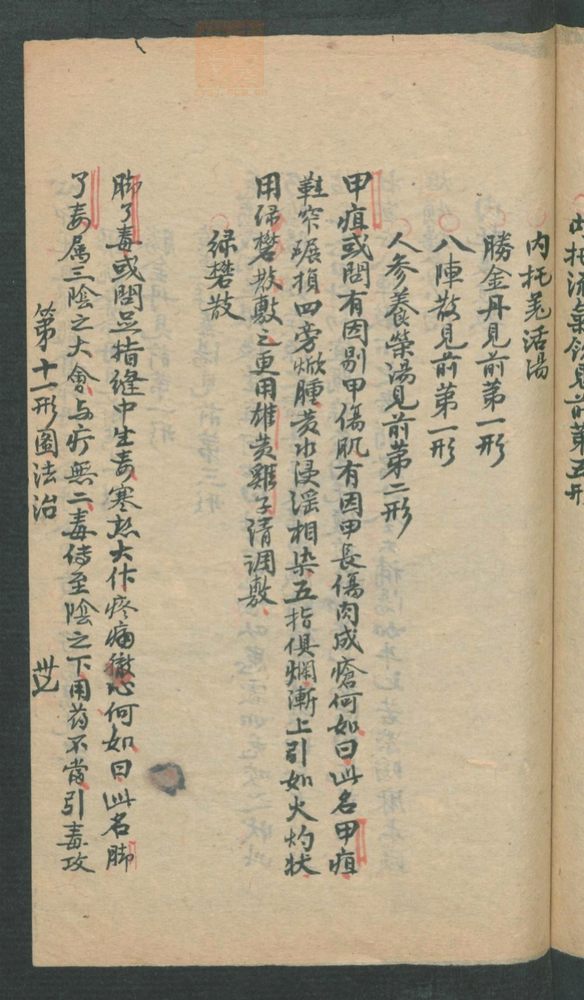 托流氣飲見前第五形
內托羗活湯
勝金丹見前第一形
八陣散見前第一形
人參養榮湯見前第二形
甲疽或問有因剔甲傷肌有因甲長傷肉成瘡何如曰此名甲疽
鞋窄碾損四旁焮腫黄水浸淫相染五指俱爛漸上引如火灼狀
用緑礬散敷之更用雄黄雞子清調敷
緑礬散
脚了毒或問足指縫中生毒寒热大作疼痛徹心何如曰此名脚
了毒属三陰之大會与疔無二毒侍至陰之下用药不當引毒攻
第十一形圖法治